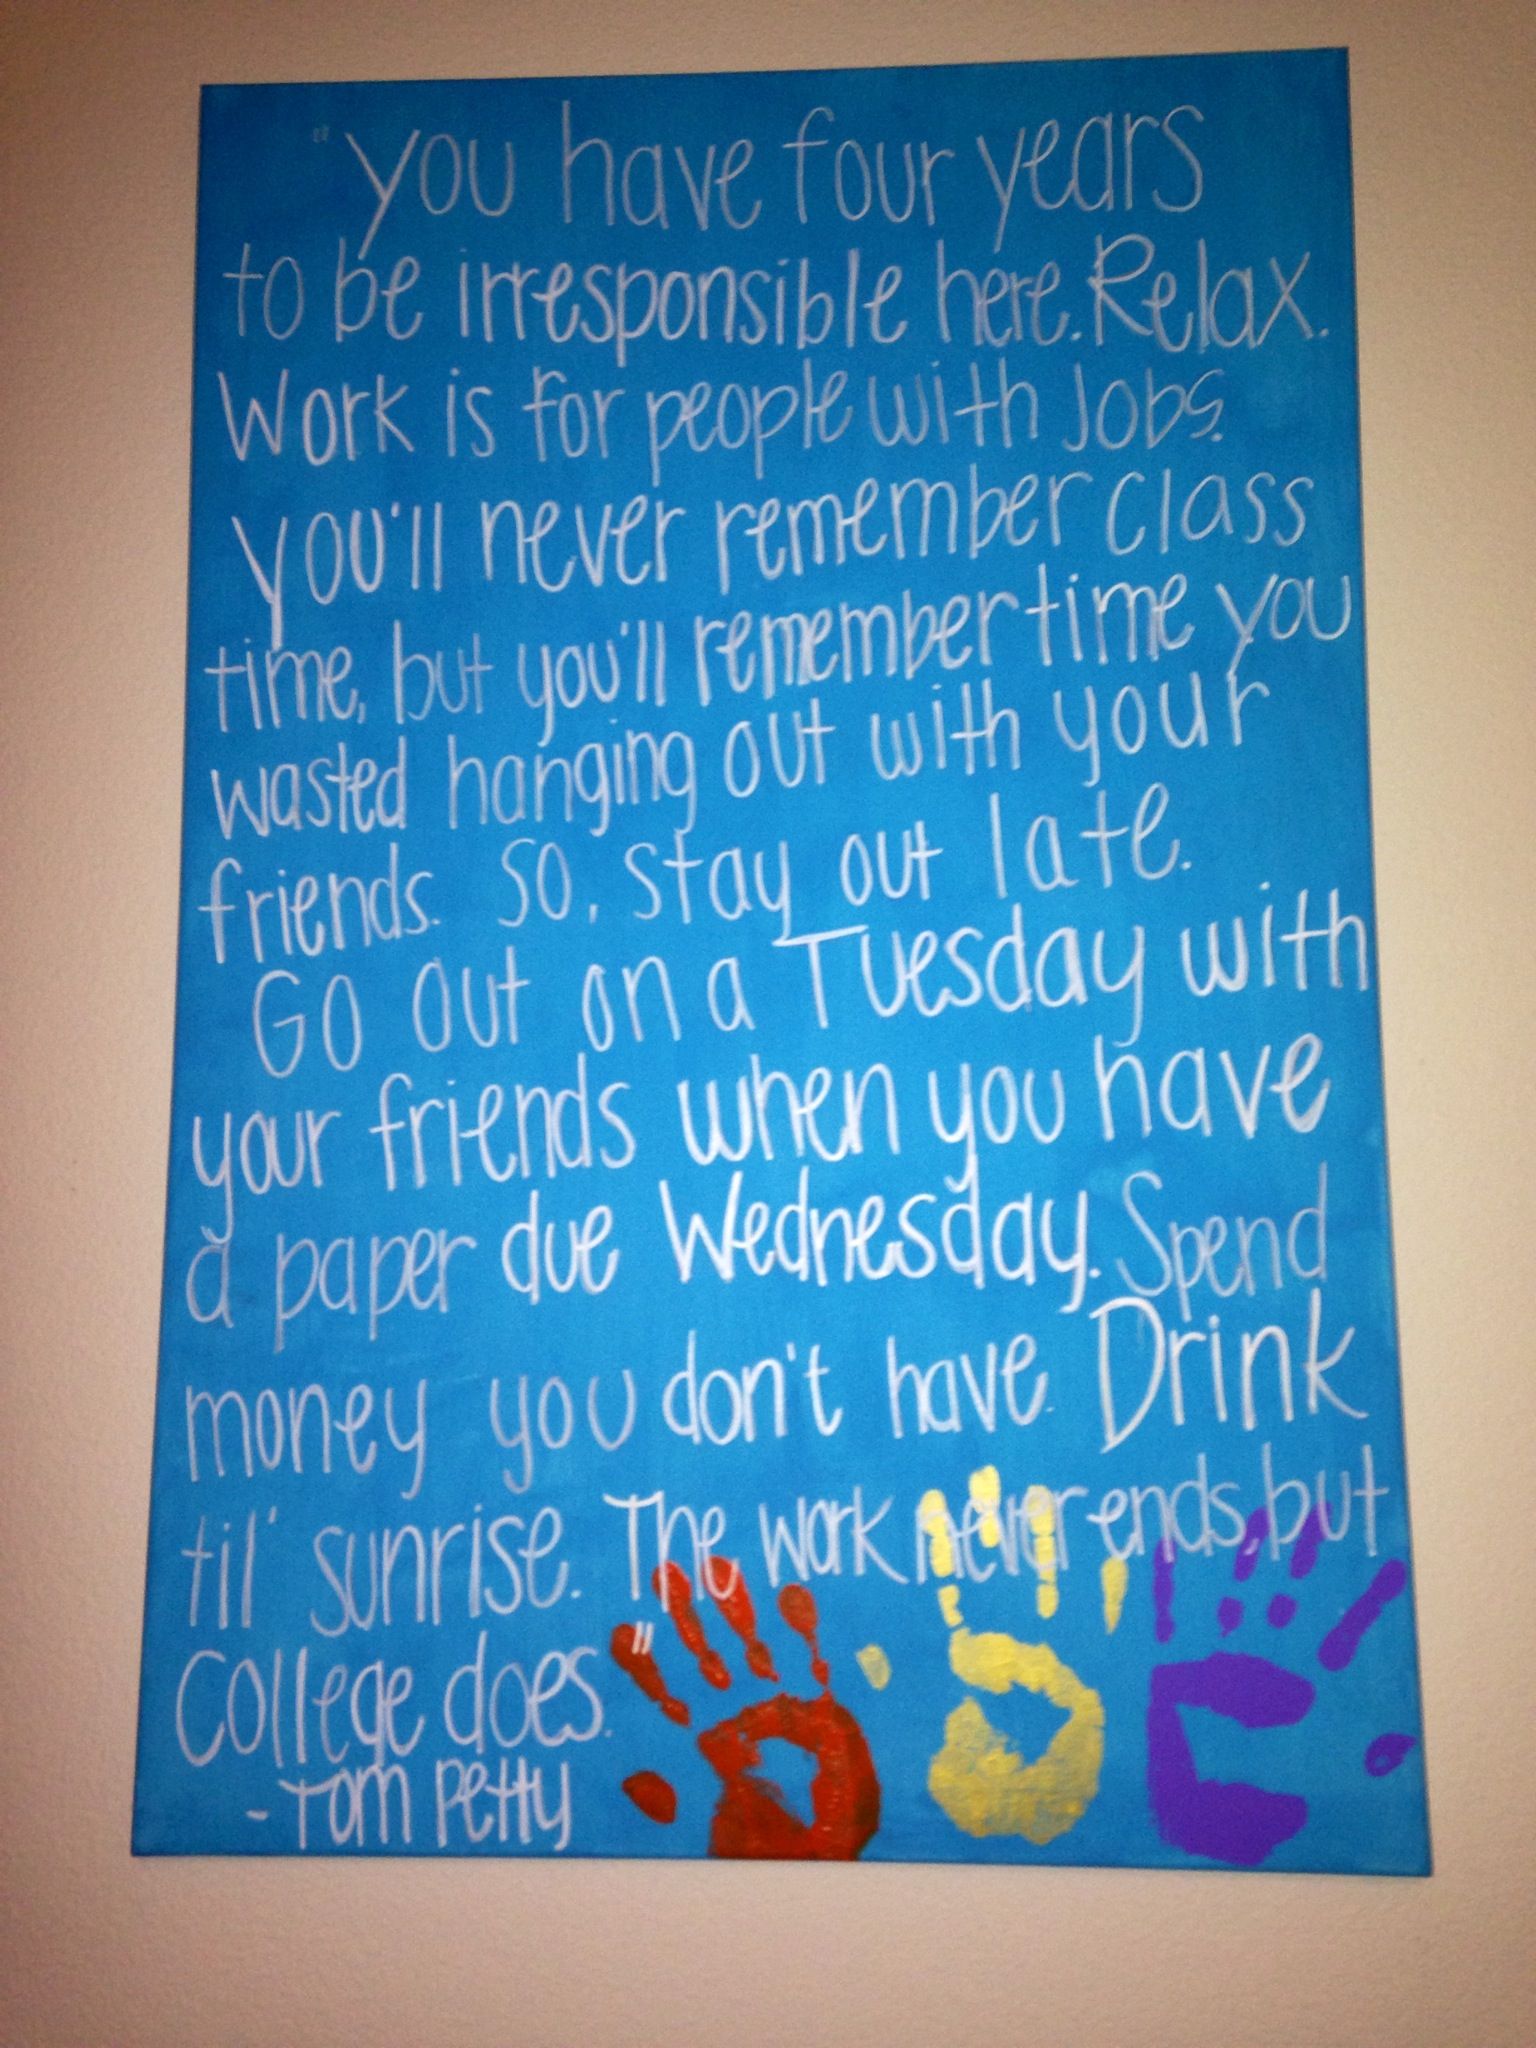 "You have four years
to be irresponsible here. Relax.
Work is for people with jobs.
You'll never remember class
time, but you'll remember time you
wasted hanging out with your
friends. So, stay out late.
Go out on a Tuesday with
your friends when you have
a paper due Wednesday. Spend
money you don't have. Drink
til' sunrise. The work never ends, but
College does."
- Tom Petty